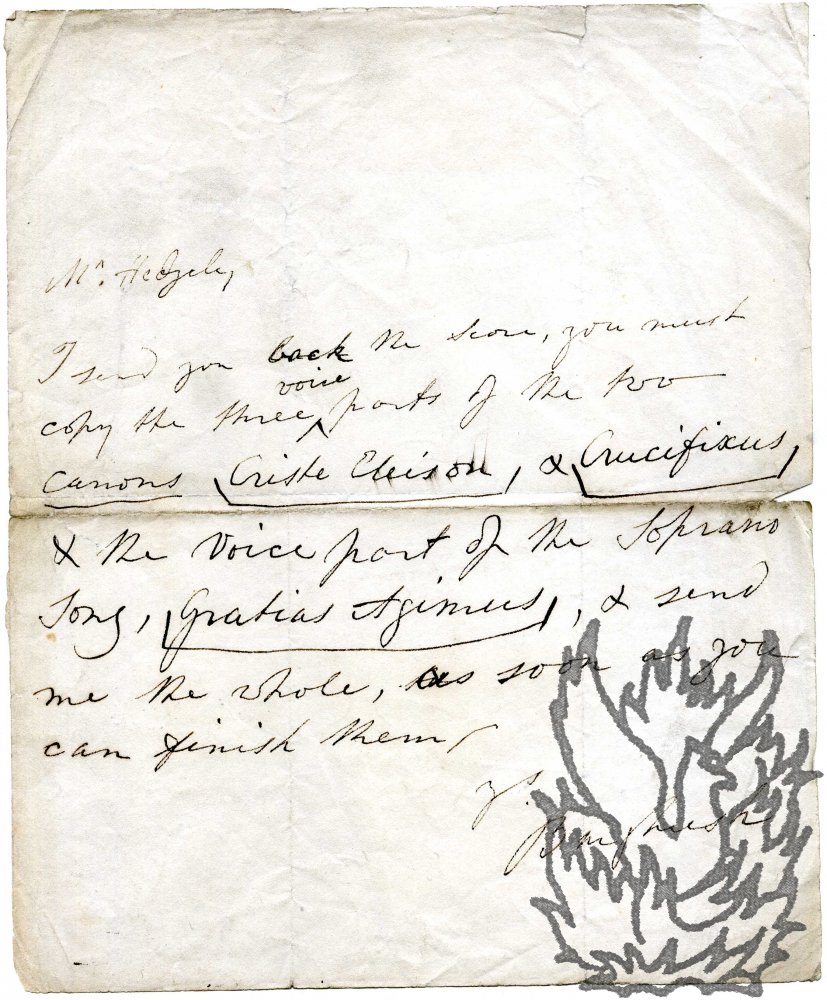 Mr. Hedgely,
I send you back the score, you must
voice
copy the three parts of the two
canons Criste Eleison, & Crucifixus,
& the Voice part of the Soprano
Song, Gratias Agimus, & send
me the whole, as soon as you
can finish them
ys.
Burghersh